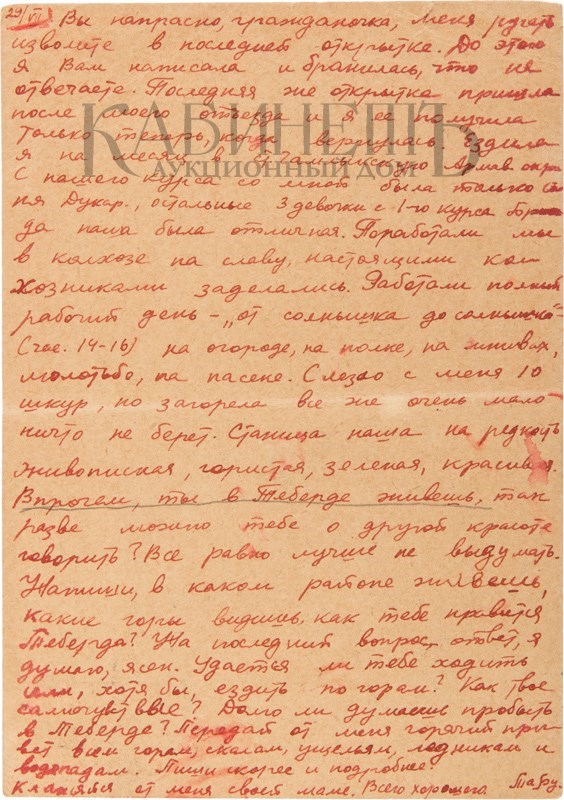 29/VII Вы напрасно, гражданочка, меня ругать
изволите в последней открытке. До этого
я Вам написала и бранилась, что не
отвечаете. Последняя же открытка пришла
после моего отъезда и я её получила
только теперь, когда вернулась. Ездила
я на месяц в
КАБИНЕТЪ
АУКЦИОННЫЙ ДОМ
С нашего курса со мной была только
ня Дукар., остальные 3 девочки с 1-го курса
да наша была отличная. Поработали мы
в колхозе на славу, настоящими кол
хозниками заделались. Работали полный
рабочий день – „от солнышка до солнышка"
(час. 14-16) на огороде, на полке, на жнивах,
молотьбе, на пасеке. Слезло с меня 10
шкур, но загорела все же очень мало
ничто не берет. Станица наша на редкость
живописная, гористая, зеленая, красивая.
Впрочем, ты в Теберде живешь, так
разве можно тебе о другой красоте
говорить? Все равно лучше не выдумать.
Напиши, в каком районе живешь,
какие горы видишь, как тебе нравится
Теберда? На последний вопрос, ответ, я
думаю, ясен. Удается ли тебе ходить
или, хотя бы, ездить по горам? Как твое
самочувствие? Долго ли думаешь пробыть
в Теберде? Передай от меня горячий при-
вет всем горам, скалам, ущельям, ледникам и
водопадам. Пиши скорее и подробнее!
Кланяйся от меня своей маме. Всего хорошего